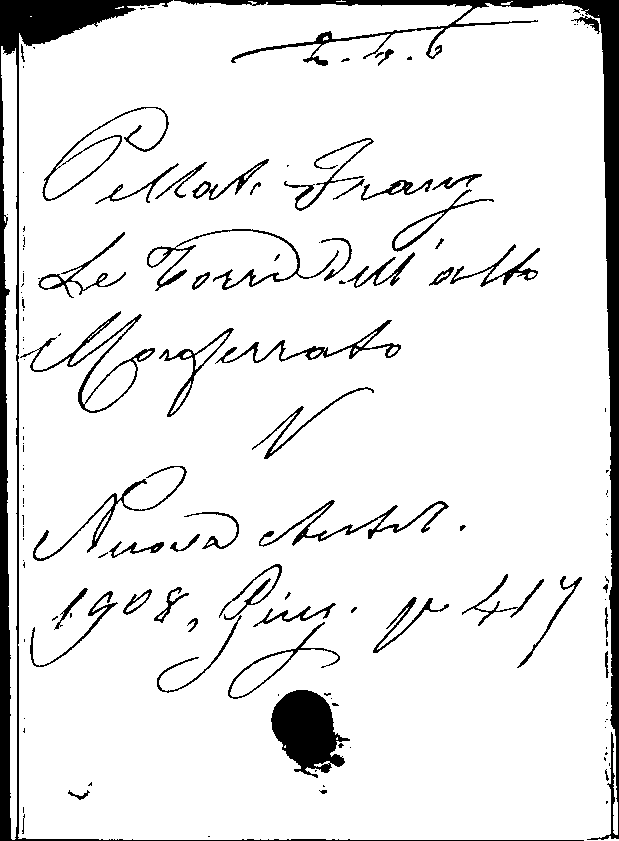 2.4.6
Pellati Franz
Le Torri Dell'alto
Monferrato
V
Nuova Antol.
1908, Giug. p 417